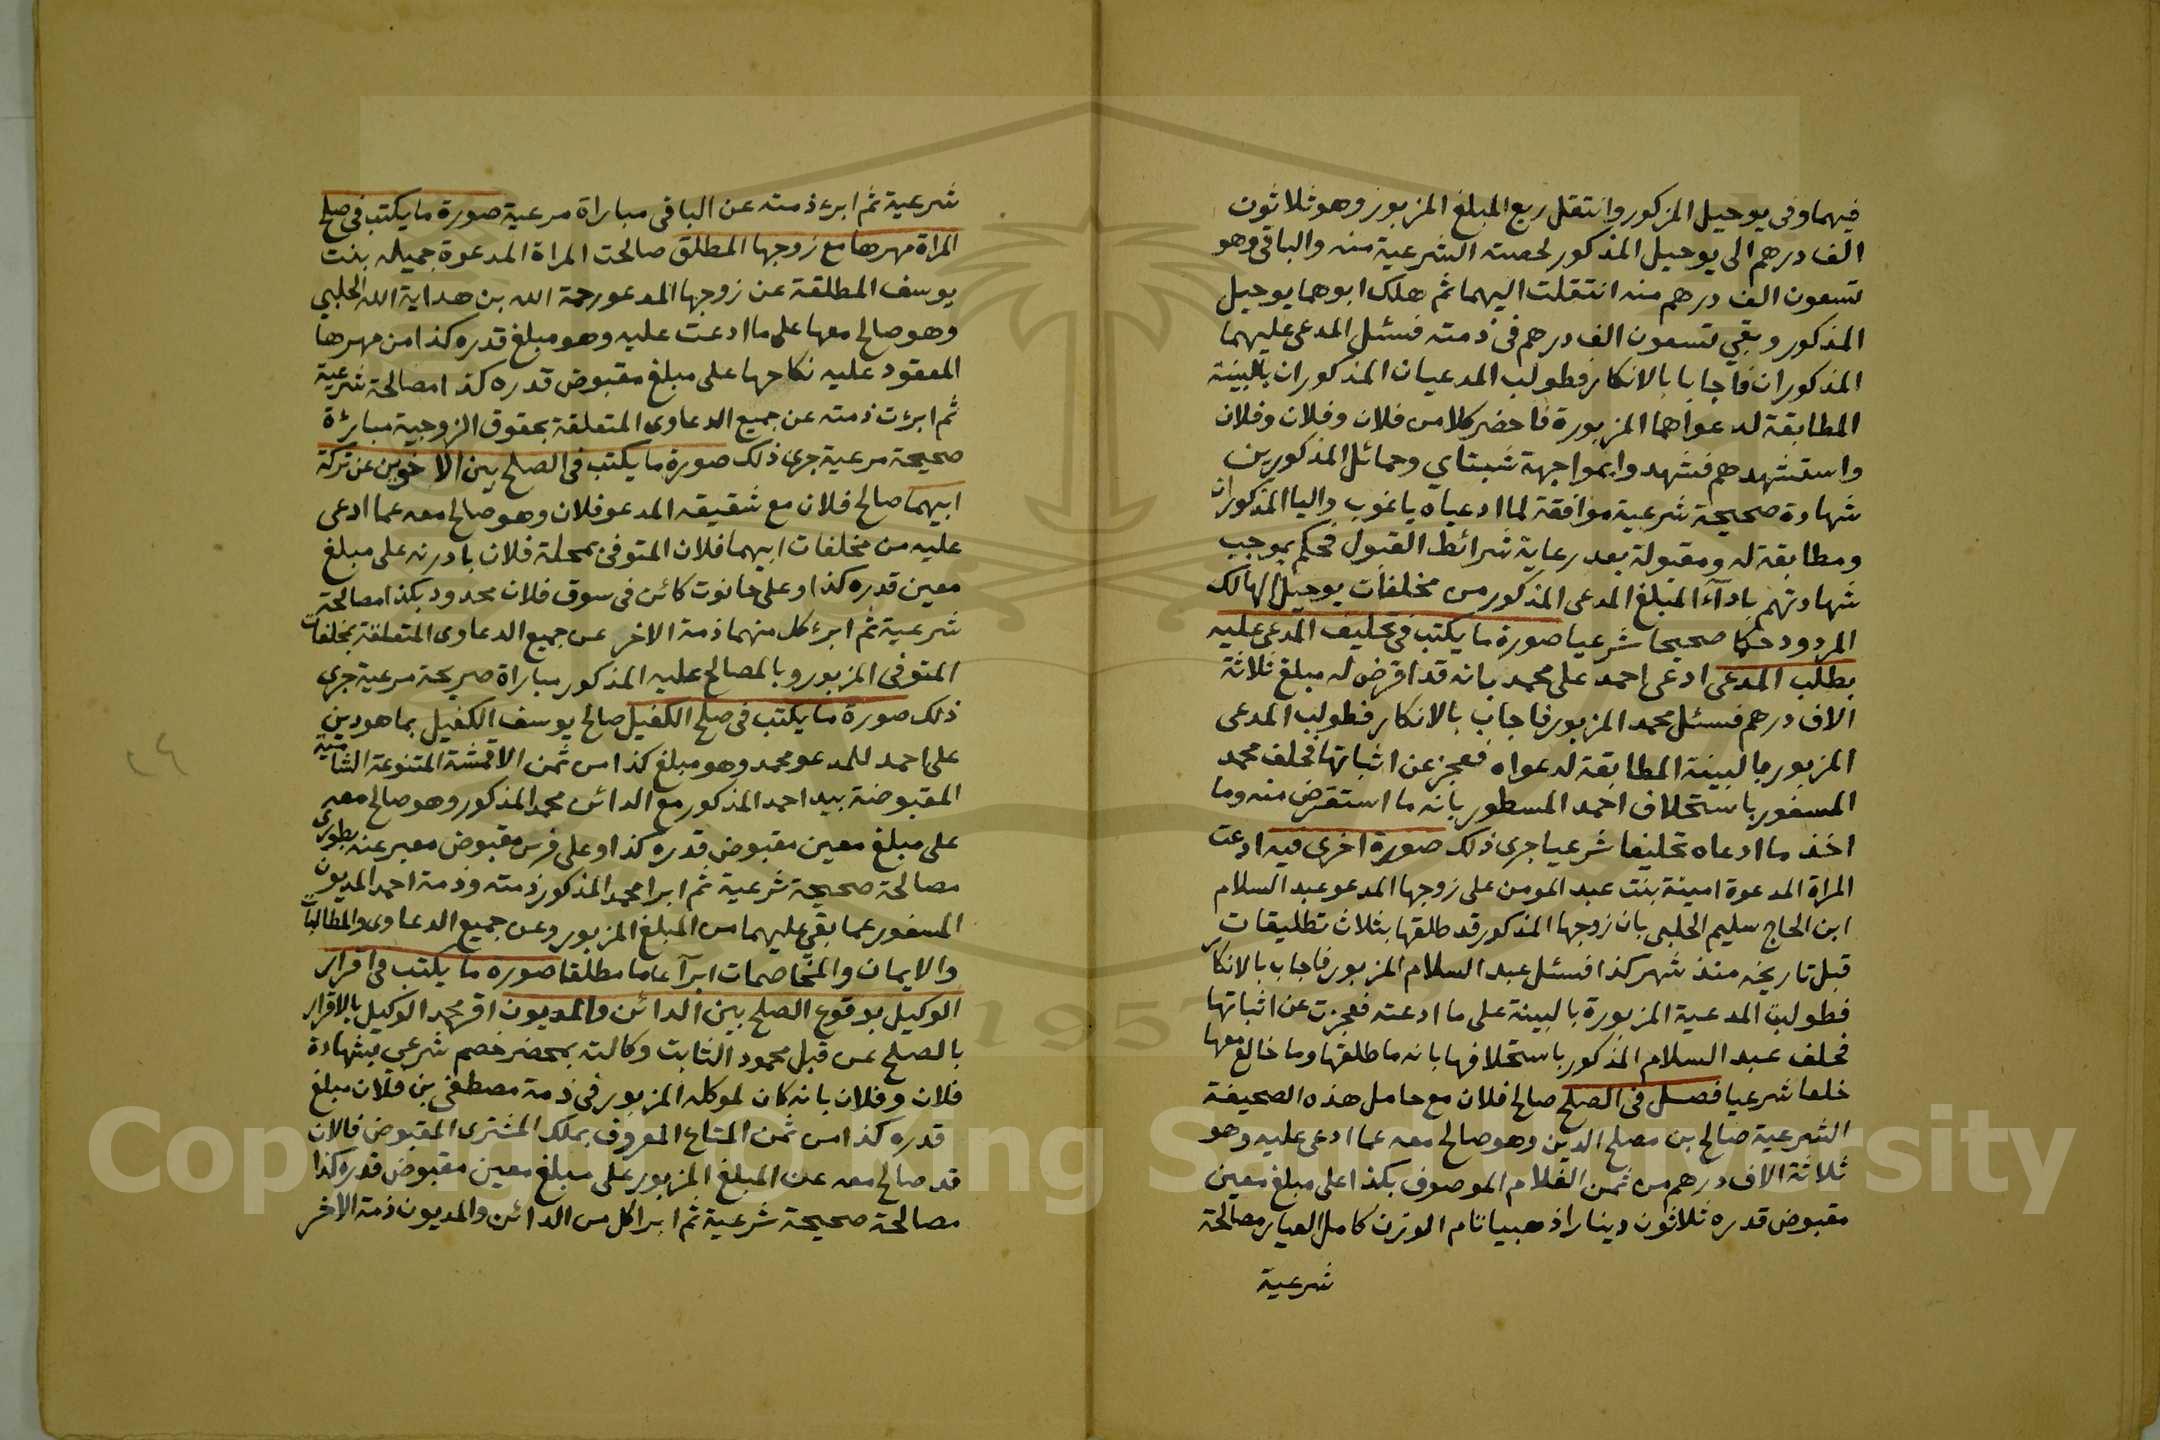 فيهما وفى يوحيل المزكور وانتقل ربع المبلغ المزبور وهو ثلاثون
الف درهم الى يوحيل المذكور لحصته الشرعية منه والباقى وهو
تسعون الف درهم منه انتقلت اليهما ثم هلك ابوهما يوحيل
المذكور وبقي تسعون الف درهم فى ذمته فسئل المدعى عليهما
المذكوران فاجابا بالانكار فطولب المدعيان المذكوران بالبينة
المطابقة لدعواهما المزبورة فاحضر كلا من فلان وفلان وفلان
واستشهدهم فشهدوا بمواجهة شبتاي وحمائل المذكورين
شهادة صحيحة شرعية موافقة لما ادعياه ياغوب واليا المذكوران
ومطابقة له ومقبولة بعد رعاية شرائط القبول فحكم بموجب
شهادتهم باداء المبلغ المدعى المذكور من مخلفات يوحيل الهالك
المردود حكما صحيحا شرعيا صورة ما يكتب فى تحليف المدعى عليه
بطلب المدعى ادعى احمد على محمد بانه قد اقرض له مبلغ ثلاثة
الاف درهم فسئل محمد المزبور فاجاب بالانكار فطولب المدعى
المزبور بالبينة المطابقة لدعواه فعجز عن اثباتها فحلف محمد
المسفور باستحلاف احمد المسطور بانه ما استقرض منه وما
اخذ ما ادعاه تحليفا شرعيا جرى ذلك صورة اخرى فيه ادعت
المراة المدعوة امينة بنت عبد المومن على زوجها المدعو عبد السلام
ابن الحاج سليم الحلبى بان زوجها المذكور قد طلقها بثلاث تطليقات
قبل تاريخه منذ شهر كذا فسئل عبد السلام المزبور فاجاب بالانكار
فطولبت المدعية المزبورة بالبينة على ما ادعته فعجزت عن اثباتها
فحلف عبد السلام المذكور باستحلافها بانه ما طلقها وما خالع معها
خلعا شرعيا فصل فى الصلح صالح فلان مع حامل هذه الصحيفة
الشرعية صالح بن مصلح الدين وهو صالح معه عما ادعى عليه وهو
ثلاثة الاف درهم من ثمن الغلام الموصوف بكذا على مبلغ معين
مقبوض قدره ثلاثون دينارا ذهبيا تام الوزن كامل العيار مصالحة
شرعية
شرعية ثم ابرء ذمته عن الباقى مباراة مرعية صورة ما يكتب فى صلح
المراة مهرها مع زوجها المطلق صالحت المراة المدعوة جميله بنت
يوسف المطلقة عن زوجها المدعو رحمة الله بن هداية الله الحلبي
وهو صالح معها على ما ادعت عليه وهو مبلغ قدره كذا من مهرها
المعقود عليه نكاحها على مبلغ مقبوض قدره كذا مصالحة شرعية
ثم ابرئت ذمته عن جميع الدعاوى المتعلقة بحقوق الزوجية مبارئة
صحيحة مرعية جرى ذلك صورة ما يكتب فى الصلح بين الاخوين عن تركة
ابيهما صالح فلان مع شقيقه المدعو فلان وهو صالح معه عما ادعى
عليه من مخلفات ابيهما فلان المتوفى بمحلة فلان بادرنه على مبلغ
معين قدره كذا وعلى حانوت كائن فى سوق فلان محدود بكذا مصالحة
شرعية ثم ابرء كل منهما ذمة الاخر عن جميع الدعاوى المتعلقة بمخلفات
المتوفى المزبور وبالمصالح عليه المذكور مباراة صريحة مرعية جرى
ذلك صورة ما يكتب فى صلح الكفيل صالح يوسف الكفيل بما هو دين
على احمد للمدعو محمد وهو مبلغ كذا من ثمن الاقمشة المتنوعة الشامية
المقبوضة بيد احمد المذكور مع الدائن محمد المذكور وهو صالح معه
على مبلغ معين مقبوض قدره كذا وعلى فرس مقبوض معبر عنه بطورى
مصالحة صحيحة شرعية ثم ابرا محمد المذكور ذمته وذمة احمد المديون
المسفور عما بقي عليهما من المبلغ المزبور وعن جميع الدعاوى والمطالبات
والايمان والمخاصمات ابرآ عاما مطلقا صورة ما يكتب فى اقرار
الوكيل بوقوع الصلح بين الدائن والمديون اقر محمد الوكيل بالاقرار
بالصلح عن قبل محمود الثابت وكالته بمحضر خصم شرعي بشهادة
فلان وفلان بانه كان لموكله المزبور فى ذمة مصطفى بن فلان مبلغ
قدره كذا من ثمن المتاع المعروف بملك المشترى المقبوض فالان
قد صالح معه عن المبلغ المزبور على مبلغ معين مقبوض قدره كذا
مصالحة صحيحة شرعية ثم ابرا كل من الدائن والمديون ذمة الاخر
1957
Copyright © King Saud University